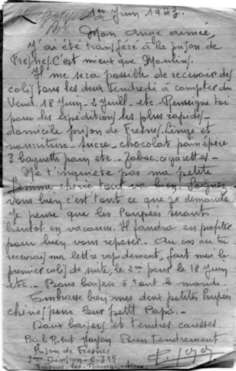 1er Juin 1943.
Mon ange aimée,
J'ai été transféré à la prison de
Fresnes. C'est mieux que
Il me sera possible de recevoir des
colis tous les deux vendredi à compter du
Vend. 18 Juin - 2 Juill. etc. Renseigne toi
pour les expéditions les plus rapides -
domicile prison de Fresnes. Linge et
nourriture. Sucre, chocolat, pain épice
baguette pain etc - tabac, cigarettes -
Ne t'inquiète pas ma petite
femme chérie tout va bien. Soignez
vous bien c'est tout ce que je demande
Je pense que les Poupées seront
bientôt en vacances. Il faudra en profiter
pour bien vous reposer. Au cas où tu
ma lettre rapidement, fait moi le
premier colis de suite, le 2ème pour le 18 Juin
etc. Bons baisers à tout le monde.
Embrasse bien mes deux petites Poupées
chéries pour leur petit Papa.
Doux baisers et tendres caresses
Bien tendrement
Prison de Fresnes
Division